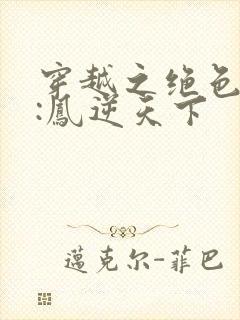 穿越之绝色
:鳳逆天下
邁克尔-菲巴